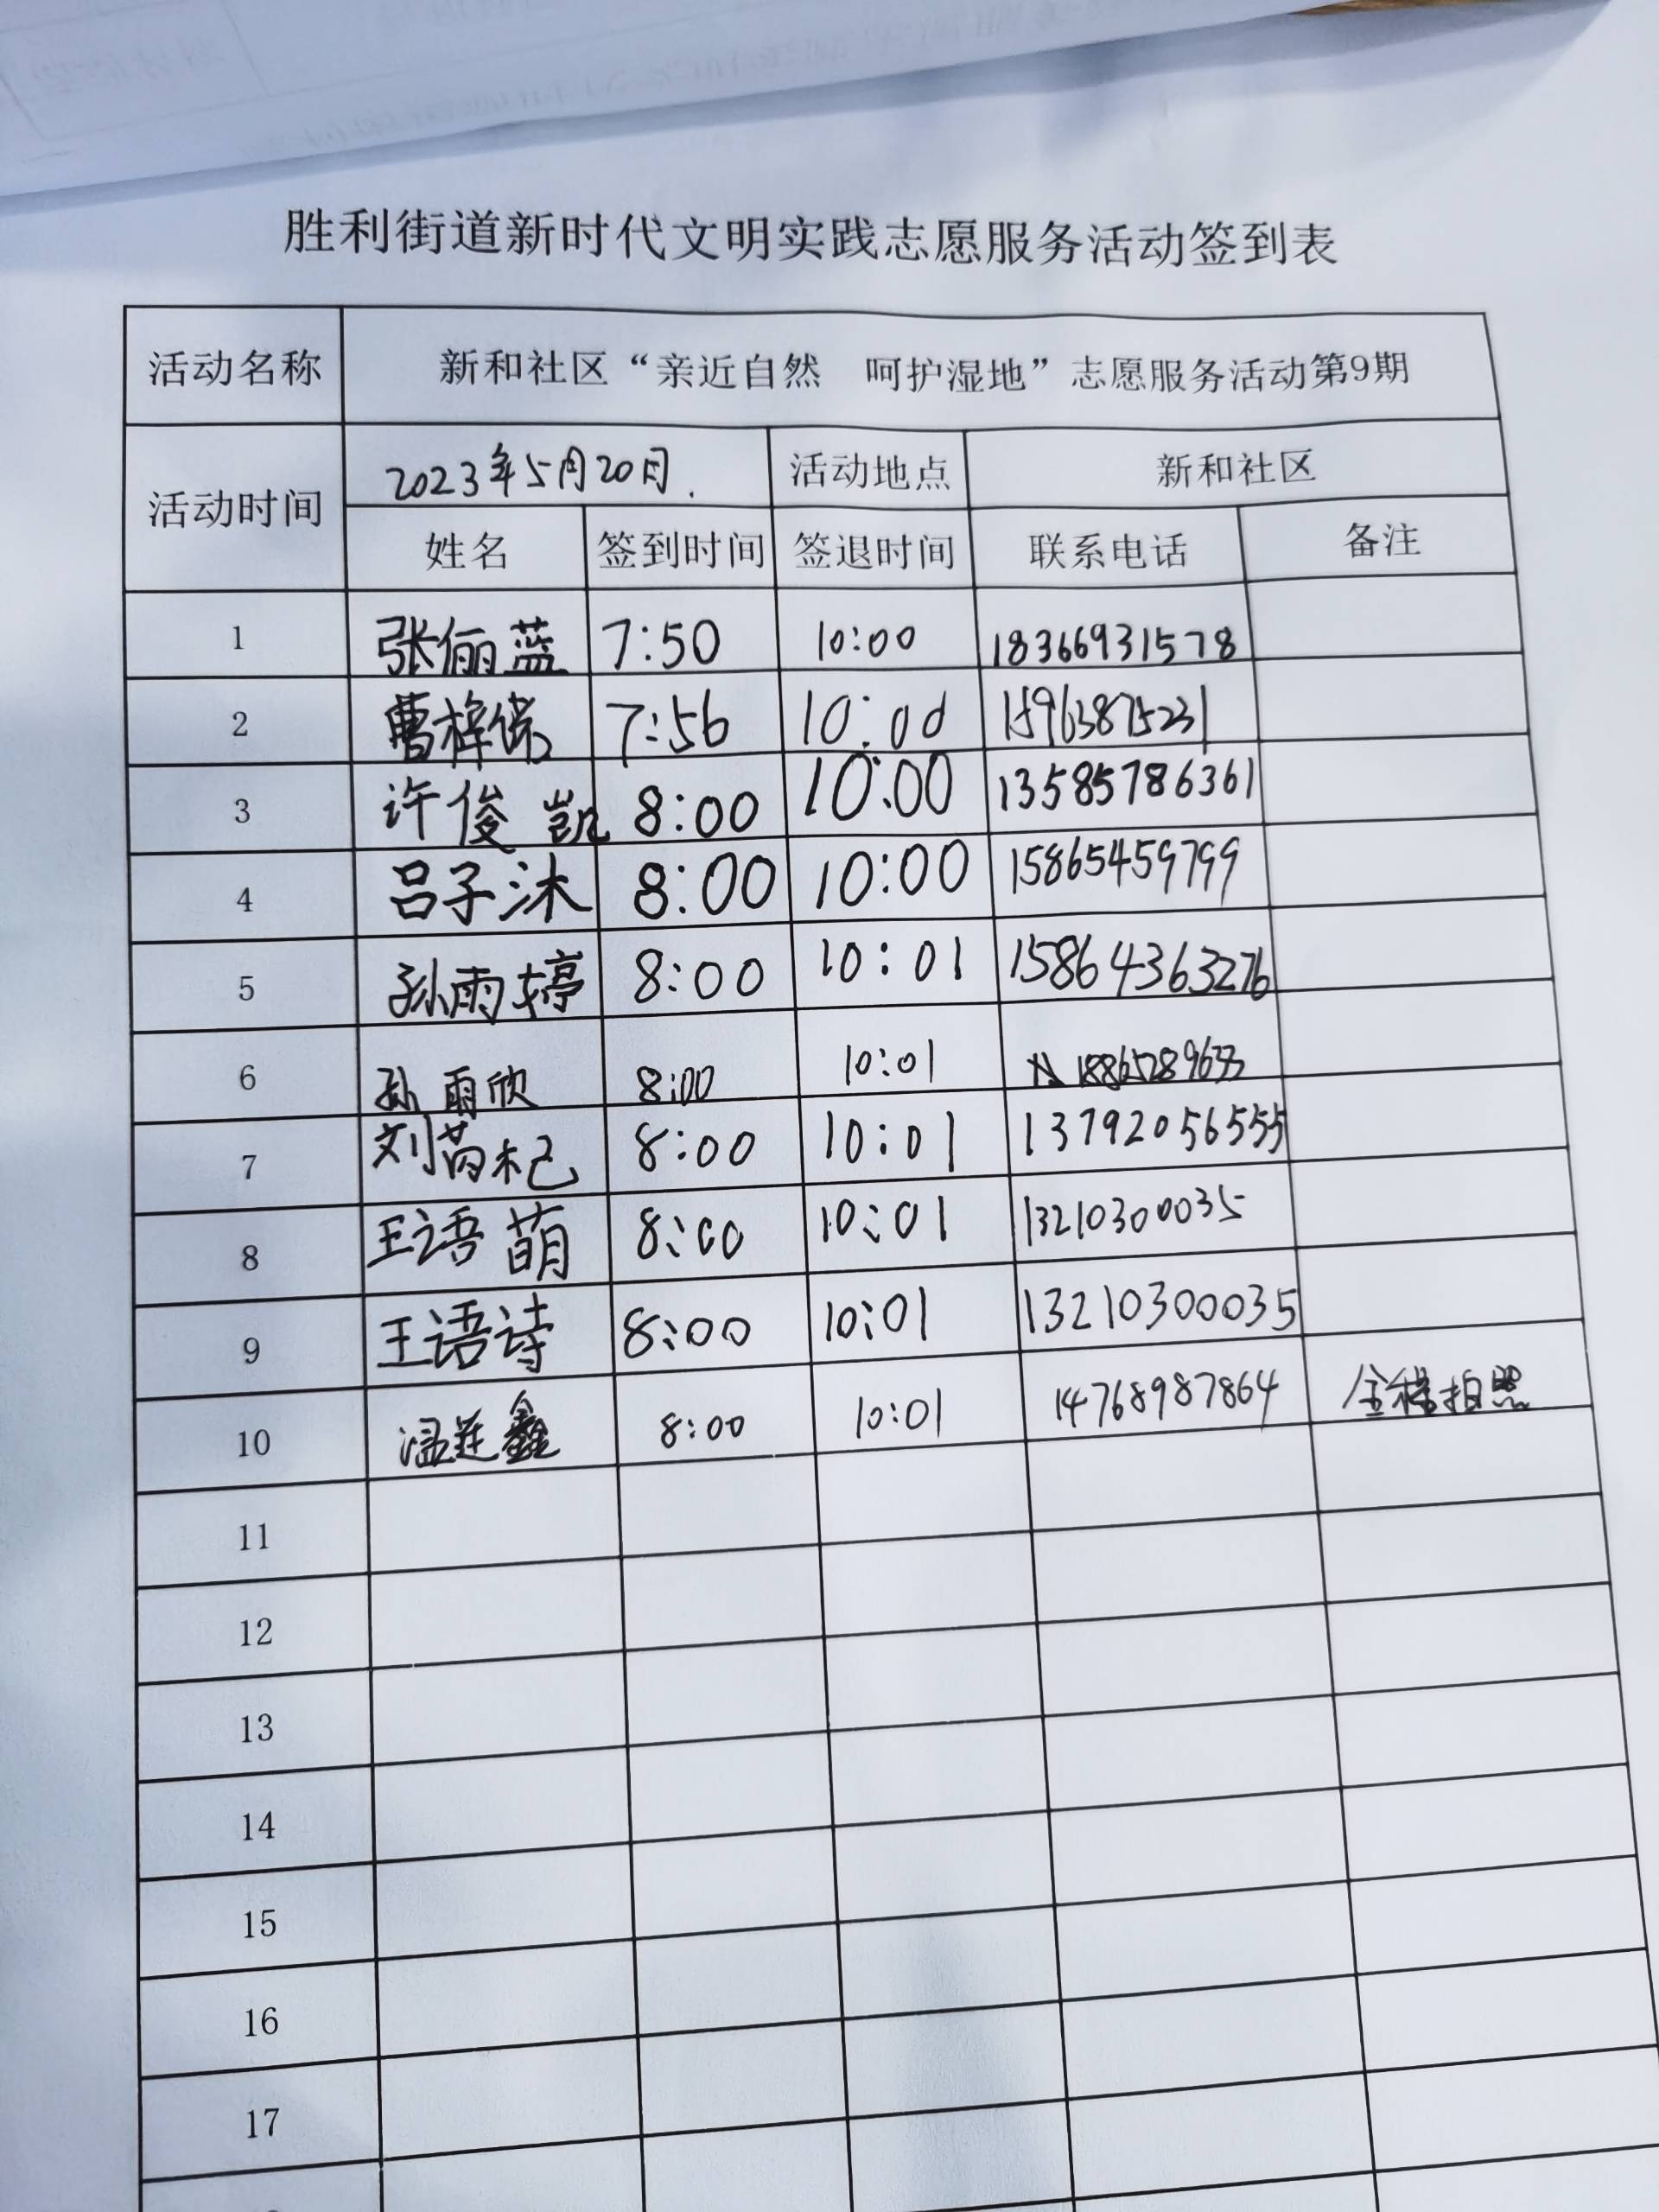 胜利街道新时代文明实践志愿服务活动签到表
活动名称 新和社区“亲近自然 呵护湿地”志愿服务活动第9期
活动时间 2023年5月20日. 活动地点 新和社区
姓名 签到时间 签退时间 联系电话 备注
1 张俪蓝 7:50 10:00 18366931578
2 曹梓 7:56 10:00 15963875231
3 许俊凯 8:00 10:00 13585786361
4 吕子沐 8:00 10:00 15865459799
5 孙雨婷 8:00 10:01 15864363276
6 孙雨欣 8:00 10:01
7 刘芮杞 8:00 10:01 13792056555
8 王语萌 8:00 10:01 13210300035
9 王语诗 8:00 10:01 13210300035
10 温廷鑫 8:00 10:01 14768987864 全程拍照
11
12
13
14
15
16
17